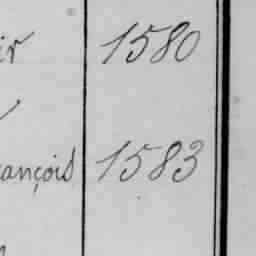 ir 1580
ançois 1583